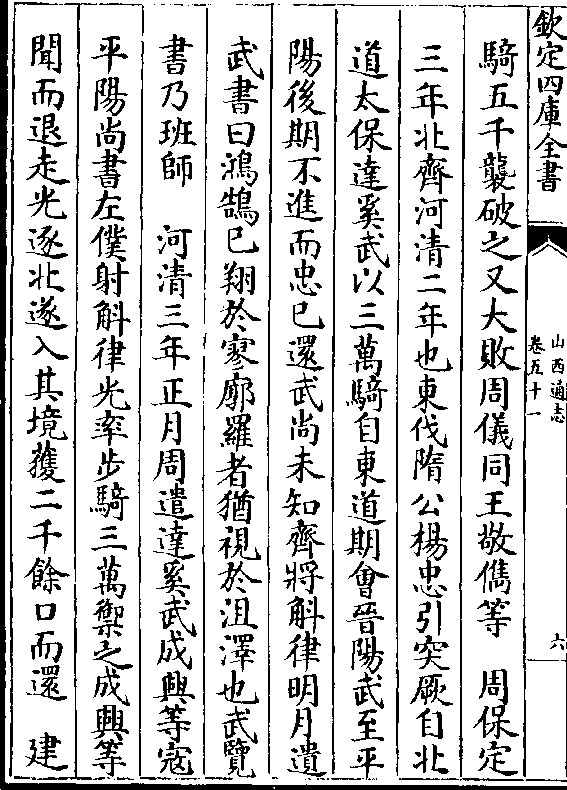 欽定四庫全書
山西通志
卷五十一
六
騎五千襲破之又大敗周儀同王敬儁等　周保定
三年北齊河清二年也東伐隋公楊忠引突厥自北
道太保達奚武以三萬騎自東道期會晉陽武至平
陽後期不進而忠已還武尚未知齊將斛律明月遺
武書曰鴻鵠已翔於寥廓羅者猶視於沮澤也武覽
書乃班師　河清三年正月周遣達奚武成興等寇
平陽尚書左僕射斛律光率步騎三萬禦之成興等
聞而退走光逐北遂入其境獲二千餘口而還　建